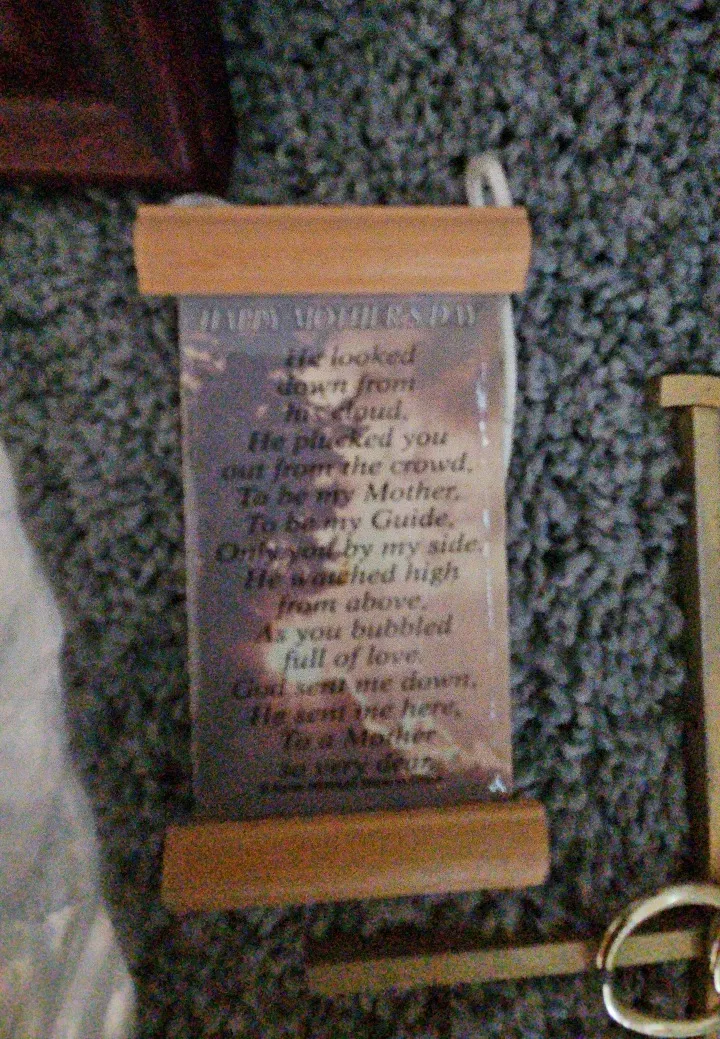 HAPPY MOTHER'S DAY
He looked
down from
his cloud,
He plucked you
out from the crowd,
To be my Mother,
To be my Guide,
Only you by my side.
He watched high
from above,
As you bubbled
full of love.
God sent me down,
He sent me here,
To a Mother
so very dear.